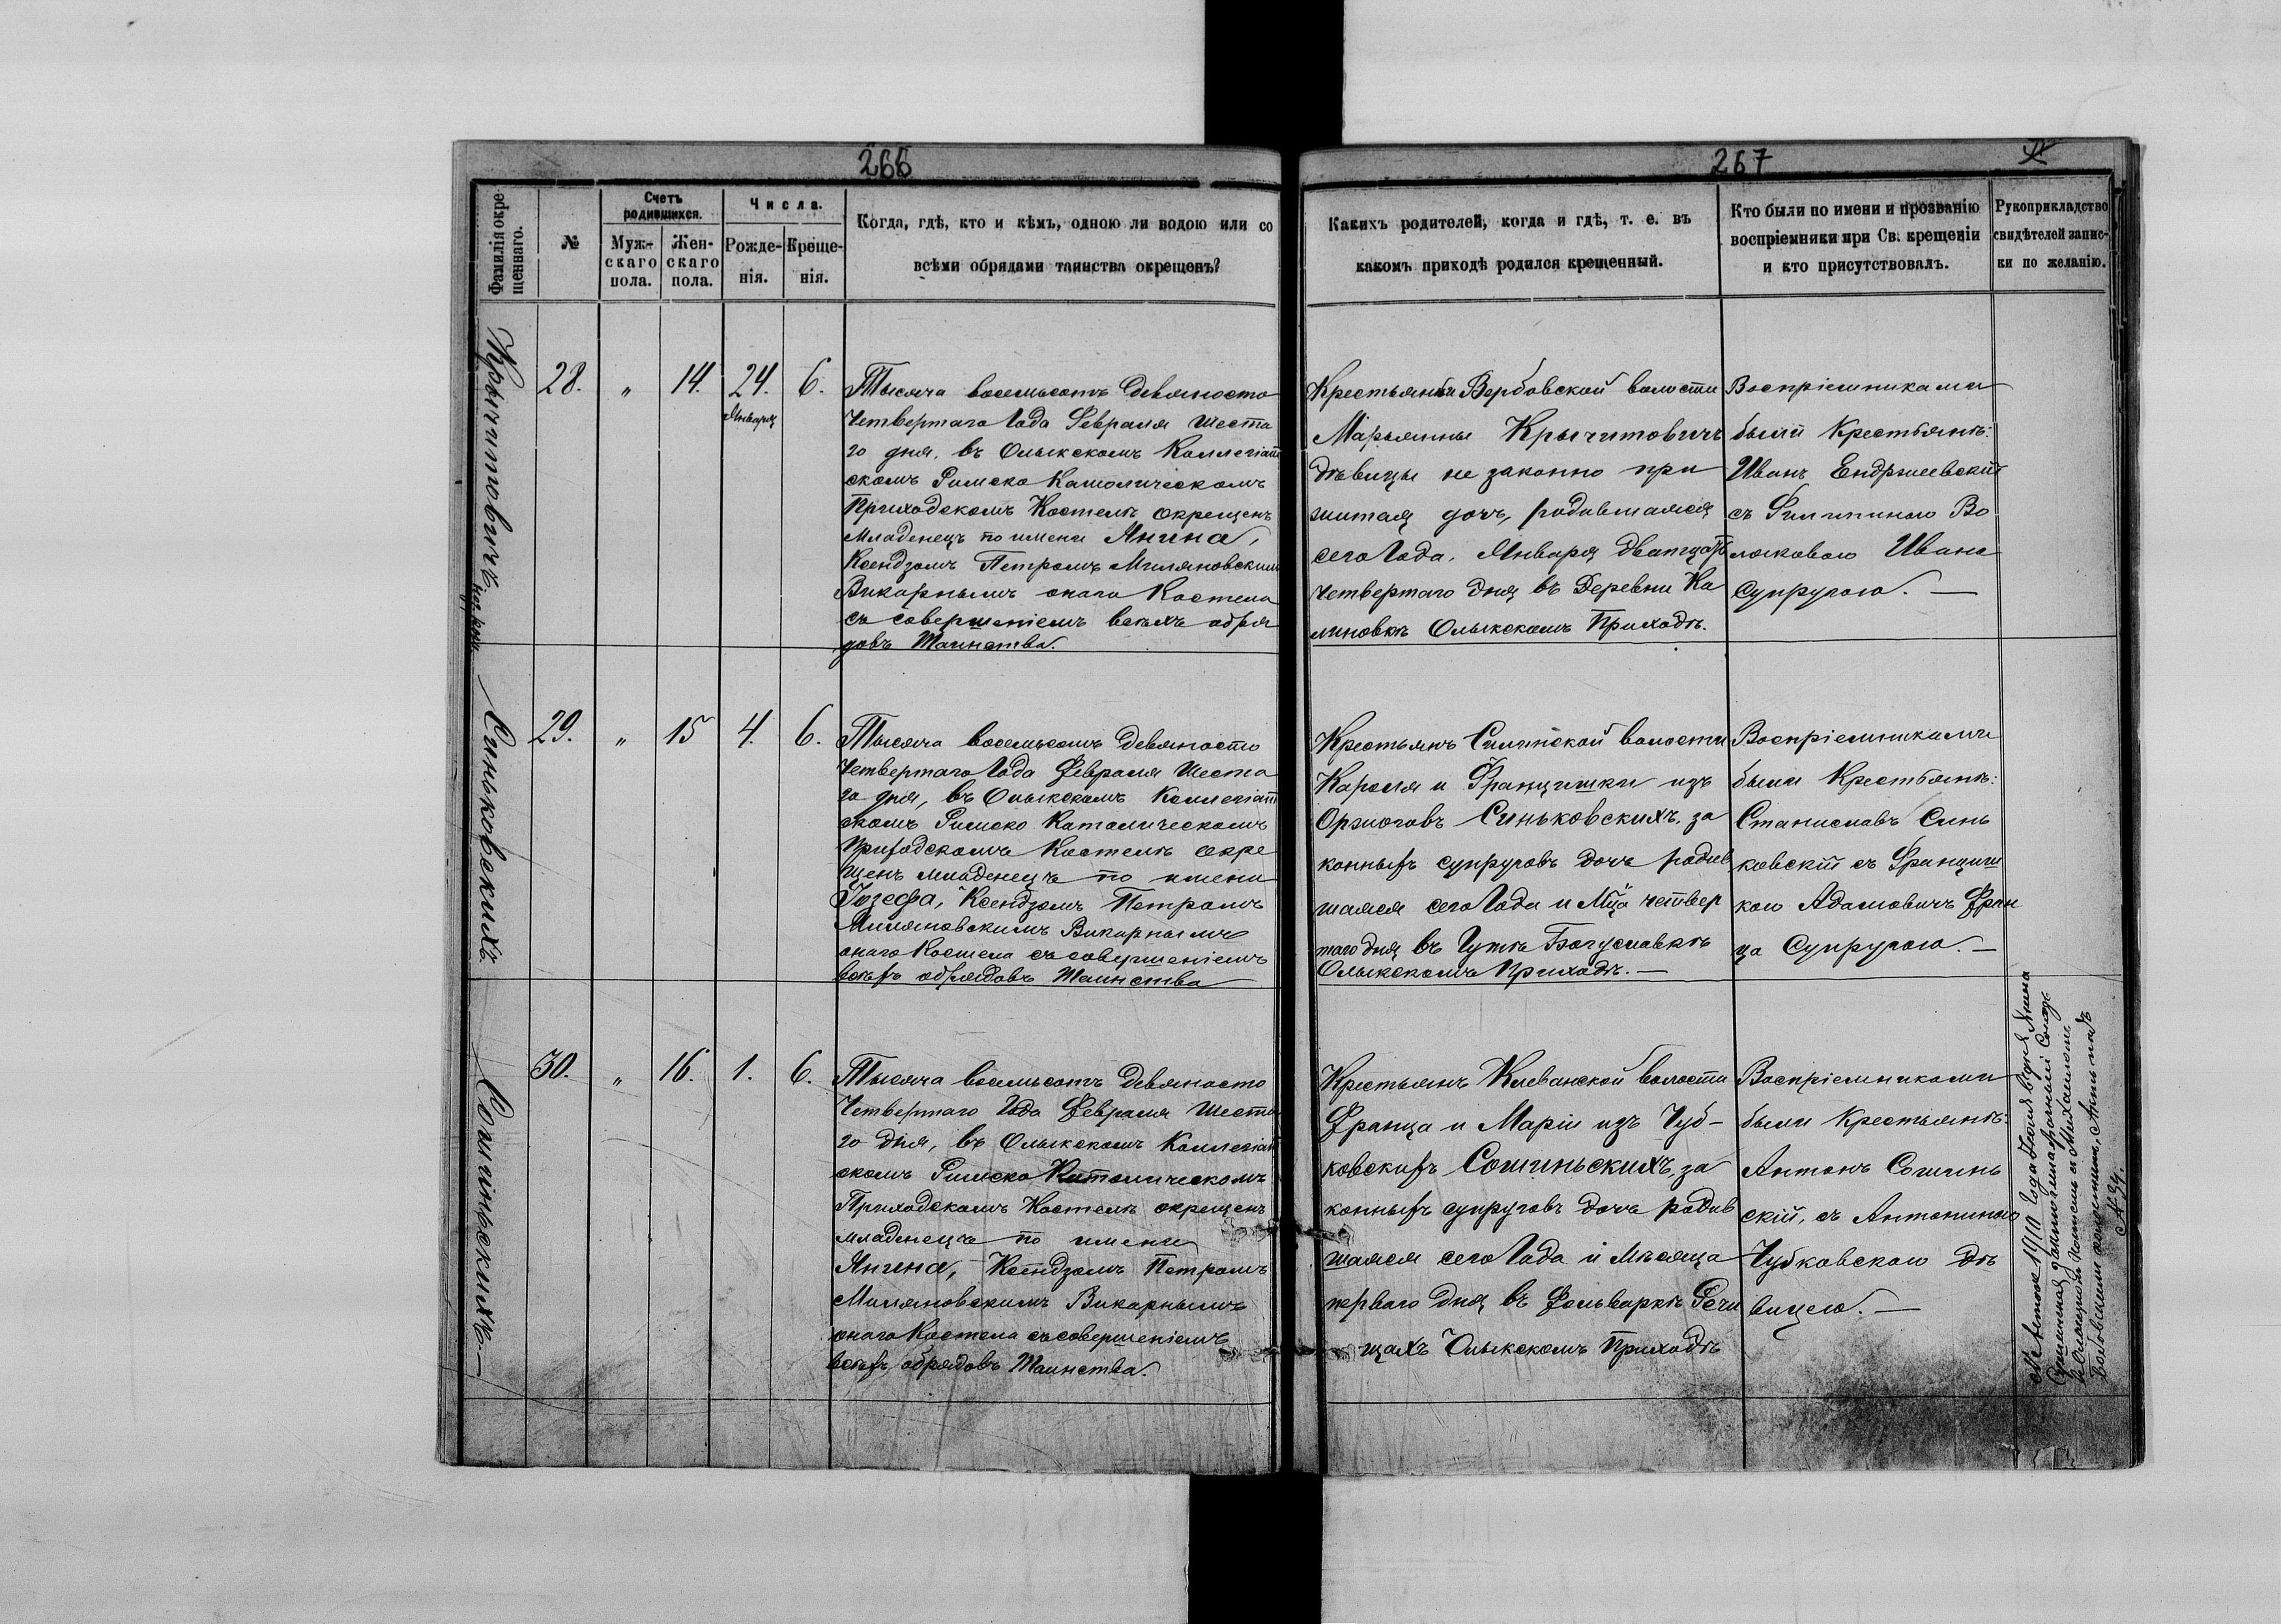 266
Фамилія окре-
щеннаго.
№
Счетъ
родившихся.
Муж-
скаго
пола.
Жен-
скаго
пола.
Числа.
Рожде-
нія.
Креще-
нія.
Когда, гдѣ, кто и кѣмъ, одною ли водою или со
всѣми обрядами таинства окрещенъ?
Крычитовичъ
28.
"
14.
24.
Января
6.
Тысяча восемьсотъ девяносто
Четвертаго Года Февраля Шеста
го дня, въ Олыкскомъ Коллегіат
скомъ Римско Католическомъ
Приходскомъ Костелѣ окрещенъ
Младенецъ по имени Янина,
Ксендзомъ Петромъ Миляновскимъ
Викарнымъ онаго Костела
съ совершеніемъ всѣхъ обря
довъ Таинства.
Синьковскихъ
29.
"
15
4.
6.
Тысяча восемьсотъ девяносто
Четвертаго Года Февраля Шеста
го дня, въ Олыкскомъ Коллегіат
скомъ Римско Католическомъ
Приходскомъ Костелѣ окре
щенъ младенецъ по имени
Іозефа, Ксендзомъ Петромъ
Миляновскимъ Викарнымъ
онаго Костела съ совершеніемъ
всѣхъ обрядовъ Таинства
Сошиньскихъ.—
30.
"
16.
1.
6.
Тысяча восемьсотъ девяносто
Четвертаго Года Февраля Шеста
го дня, въ Олыкскомъ Коллегіат
скомъ Римско Католическомъ
Приходскомъ Костелѣ окрещенъ
младенецъ по имени
Янина, Ксендзомъ Петромъ
Миляновскимъ Викарнымъ
онаго Костела съ совершеніемъ
всѣхъ обрядовъ Таинства.
267
Какихъ родителей, когда и гдѣ, т. е. въ
какомъ приходѣ родился крещенный.
Кто были по имени и прозванію
воспріемники при Св. крещеніи
и кто присутствовалъ.
Рукоприкладство
свидѣтелей запис-
ки по желанію.
Крестьянки Вербовской волости
Марьянны Крычитовичъ
дѣвицы не законно при
житая дочь, родившаяся
сего Года, Января двадцать
четвертаго дня въ Деревни Ка
линовкѣ Олыкскомъ Приходѣ.
Воспріемниками
были Крестьянѣ:
Иванъ Ендржеевскій
съ Филипиною Во
лковою Ивана
супругою. —
Крестьянъ Силинской волости
Кароля и Францишки изъ
Оржоговъ Синьковскихъ, за
конныхъ супруговъ дочь родив
шаяся сего Года и Мца четвер
таго дня въ Гутѣ Богуславкѣ
Олыкскомъ Приходѣ. —
Воспріемниками
были Крестьянѣ:
Станиславъ Синь
ковскій съ Франциш
кою Адамовичъ Фран
ца Супругою. —
Крестьянъ Клеванской волости
Франца и Маріи изъ Чуб-
ковскихъ Сошиньскихъ, за
конныхъ супруговъ дочь родив
шаяся сего Года и Мѣсяца
перваго дня въ Фольваркѣ Речи
щахъ Олыкскомъ Приходѣ
Воспріемниками
были Крестьянѣ:
Антонъ Сошинь
скій, съ Антониною
Чубковскою дѣ
вицею. —
1910 года
Янина
№ 34.